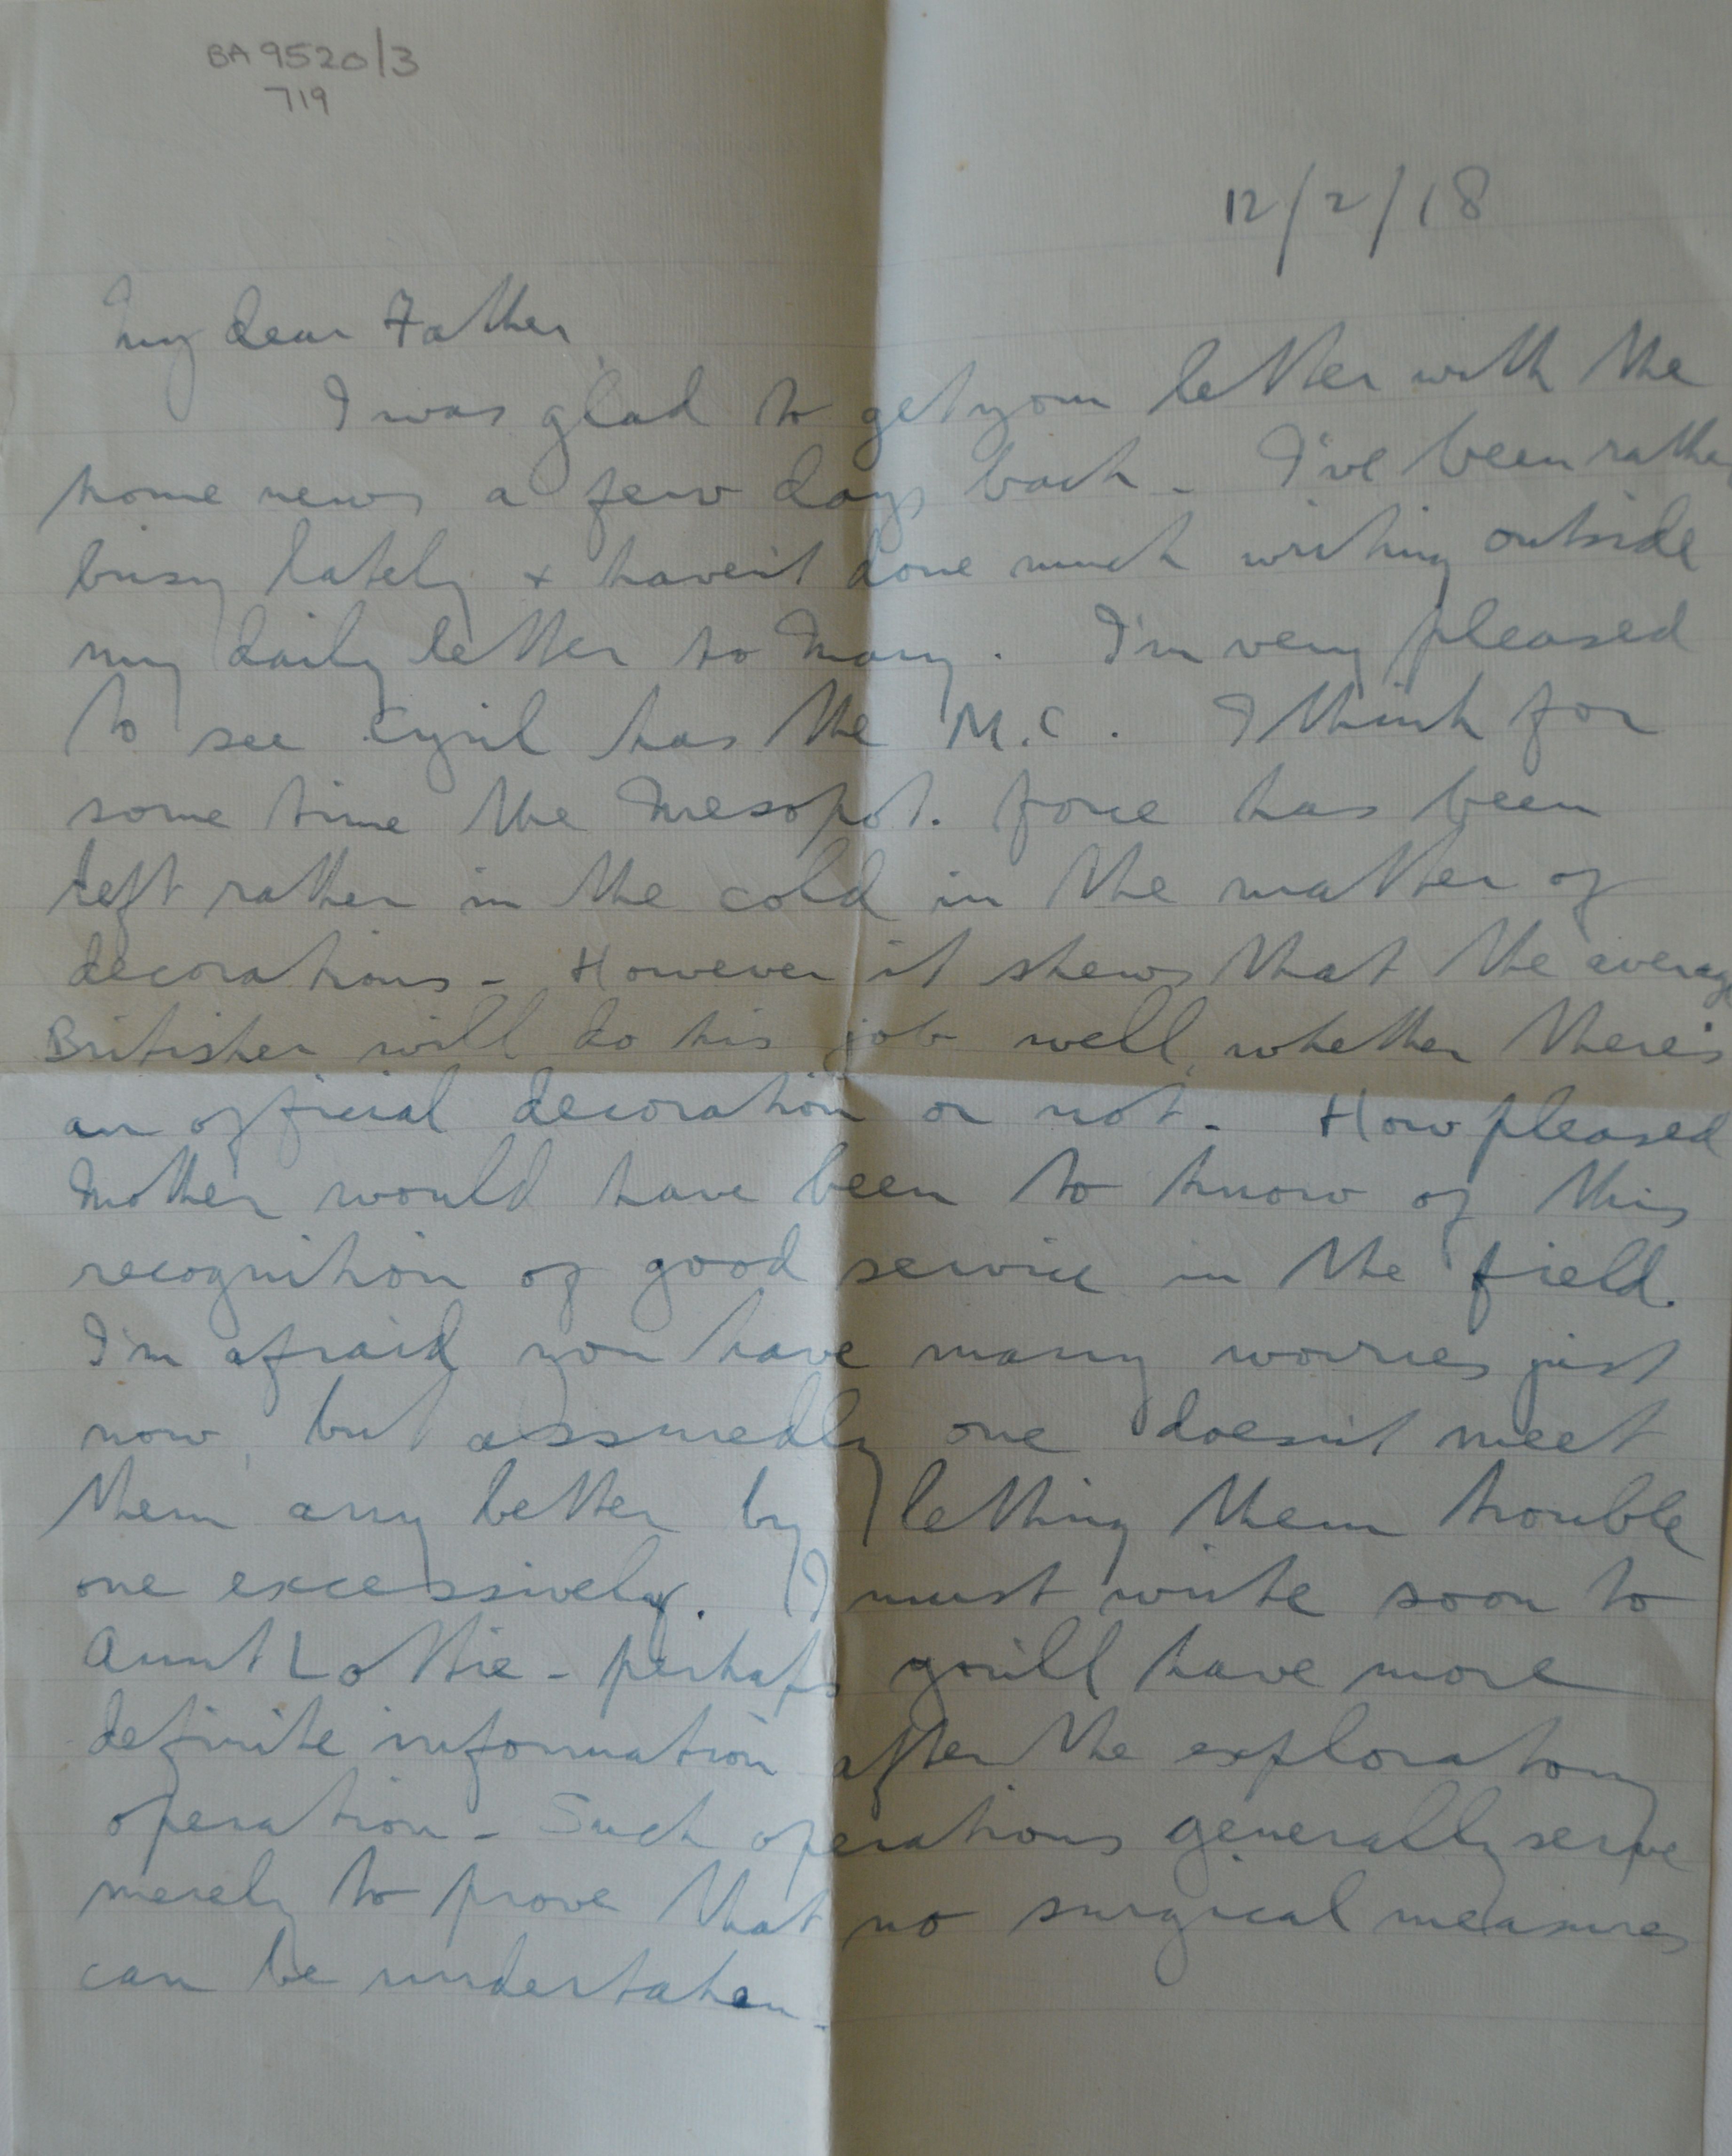 BA 9520/3
719
12/2/18
My dear Father,
I was glad to get your letter with the
home news a few days back - I've been rather
busy lately + haven't done much writing outside
my daily letter to Mary. I'm very pleased
to see Cyril has the M.C. I think for
some time the Mesopot. force has been
left rather in the cold in the matter of
decorations - However it shews that the average
Britisher will do his job well, whether there's
an official decoration or not. How pleased
Mother would have been to know of this
recognition of good service in the field.
I'm afraid you have many worries just
now, but assuredly one doesn't meet
them any better by letting them trouble
one excessively. I must write soon to
Aunt Lottie - perhaps you'll have more
definite information after the exploratory
operation - Such operations generally serve
merely to prove that no surgical measures
can be undertaken.